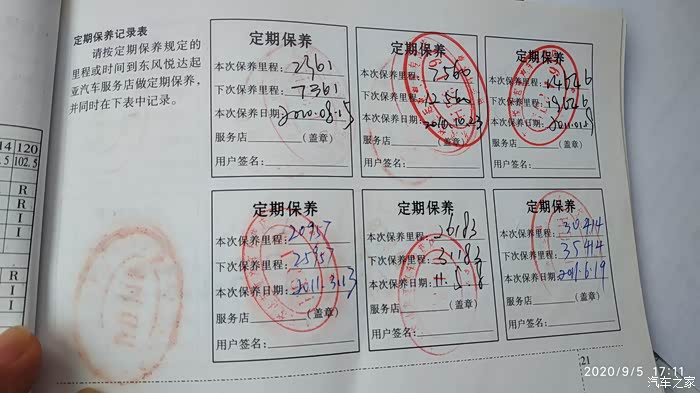 定期保养记录表
请按定期保养规定的
里程或时间到东风悦达起
亚汽车服务店做定期保养，
并同时在下表中记录。
14 120
.5 102.5
R
R
I
I
R
I
I
定期保养
本次保养里程：2361
下次保养里程：7361
本次保养日期：2010.08.15
服务店（盖章）
用户签名：
定期保养
本次保养里程：7560
下次保养里程：12560
本次保养日期：2010.10.23
服务店（盖章）
用户签名：
定期保养
本次保养里程：14646
下次保养里程：19646
本次保养日期：
服务店（盖章）
用户签名：
定期保养
本次保养里程：20957
下次保养里程：25957
本次保养日期：2011.3.13
服务店（盖章）
用户签名：
定期保养
本次保养里程：26183
下次保养里程：31183
本次保养日期：11.5.8
服务店（盖章）
用户签名：
定期保养
本次保养里程：30414
下次保养里程：35414
本次保养日期：2011.6.19
服务店（盖章）
用户签名：
21
2020/9/5 17:11
汽车之家